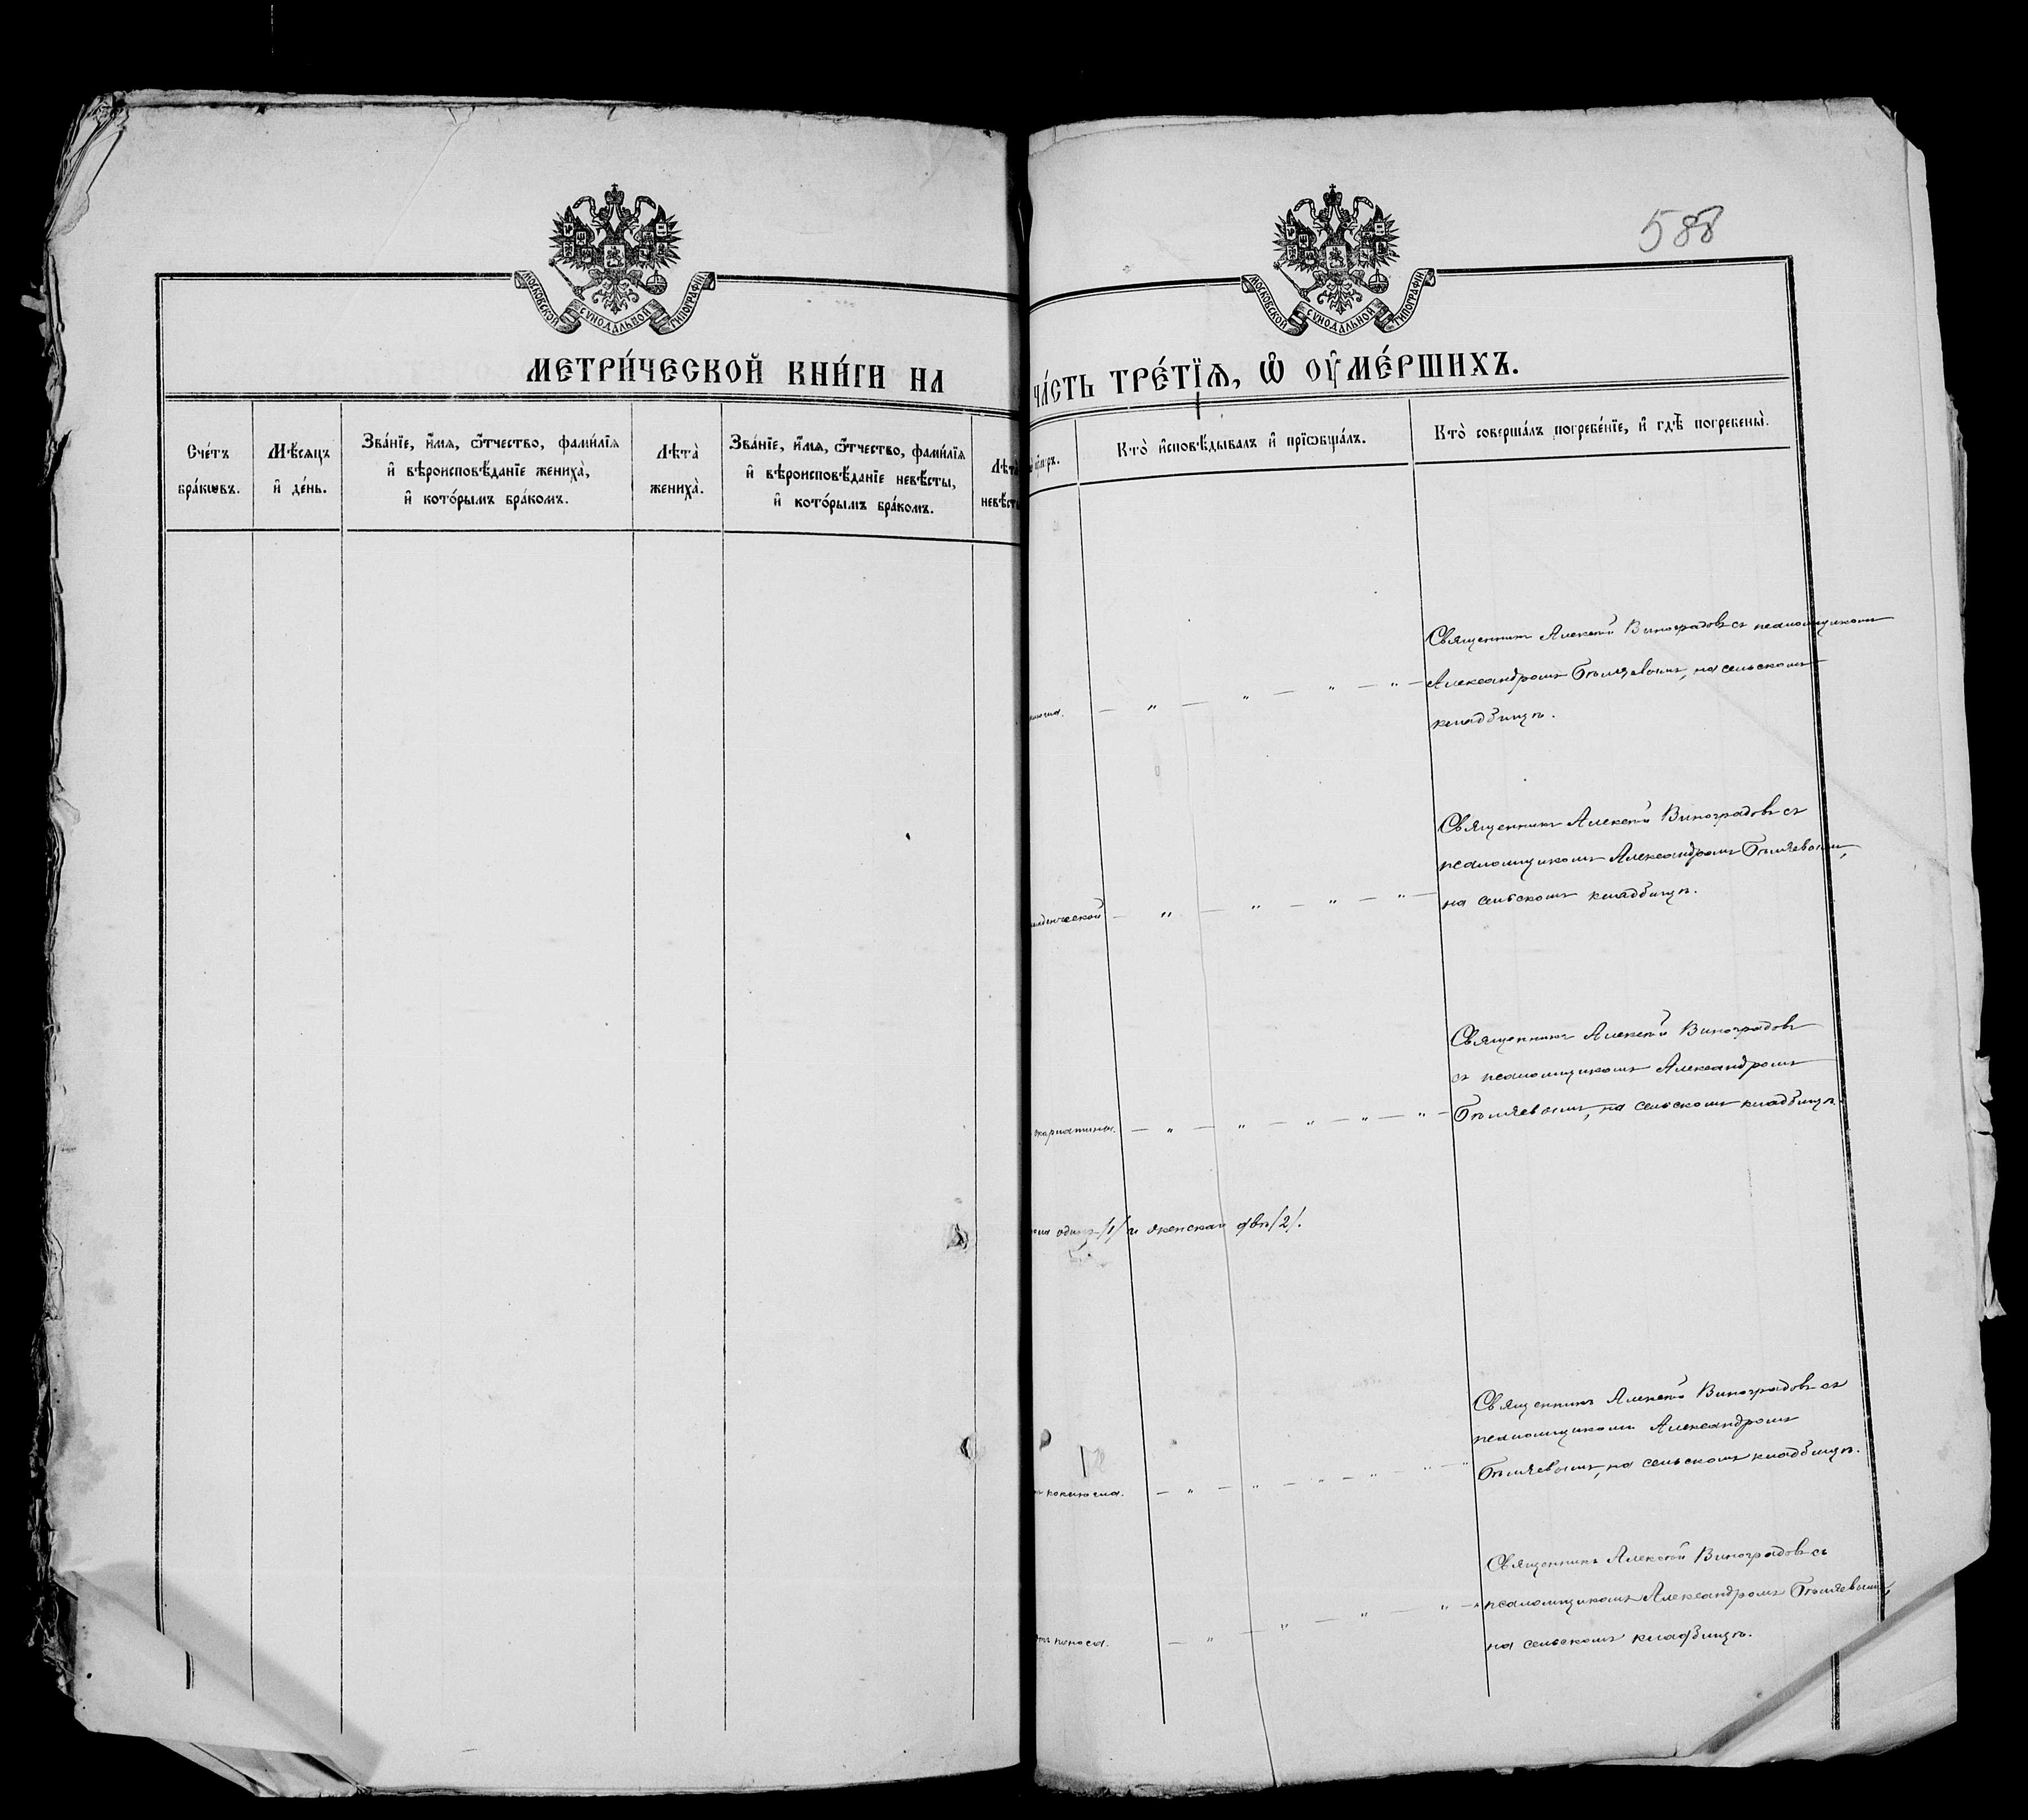 МОСКОВСКОЙ СѴНОДАЛЬНОЙ ТИПОГРАФІИ
МЕТРИ́ЧЕСКОЙ КНИ́ГИ НА
Сче́тъ
бра́кѡвъ.
Мѣ́сяцъ
и҆ де́нь.
Зва́нїе, и҆́мя, ѻ҆́тчество, фами́лїя
и҆ вѣроисповѣ́данїе жениха̀,
и҆ кото́рымъ бра́комъ.
Лѣта̀
жениха̀.
Зва́нїе, и҆́мя, ѻ҆́тчество, фами́лїя
и҆ вѣроисповѣ́данїе невѣ́сты,
и҆ кото́рымъ бра́комъ.
Лѣта̀
невѣ́сты
588
МОСКОВСКОЙ СѴНОДАЛЬНОЙ ТИПОГРАФІИ
ЧА́СТЬ ТРЕ́ТЇѦ, Ѡ҆ ОУ҆МЕ́РШИХЪ.
Кто̀ и҆сповѣ́дывалъ и҆ прїѡбща́лъ.
Кто̀ соверша́лъ погребе́нїе, и҆ гдѣ̀ погребены̀.
Священникъ Алексѣй Виноградовъ съ псаломщикомъ
Александромъ Бѣляевымъ, на сельскомъ
кладбищѣ.
Священникъ Алексѣй Виноградовъ съ
псаломщикомъ Александромъ Бѣляевымъ,
на сельскомъ кладбищѣ.
Священникъ Алексѣй Виноградовъ
съ псаломщикомъ Александромъ
скарлатины. Бѣляевымъ, на сельскомъ кладбищѣ.
одинъ /1/ и женска двѣ /2/.
Священникъ Алексѣй Виноградовъ съ
псаломщикомъ Александромъ
Бѣляевымъ, на сельскомъ кладбищѣ.
коклюша.
Священникъ Алексѣй Виноградовъ съ
псаломщикомъ Александромъ Бѣляевымъ,
отъ поноса. на сельскомъ кладбищѣ.